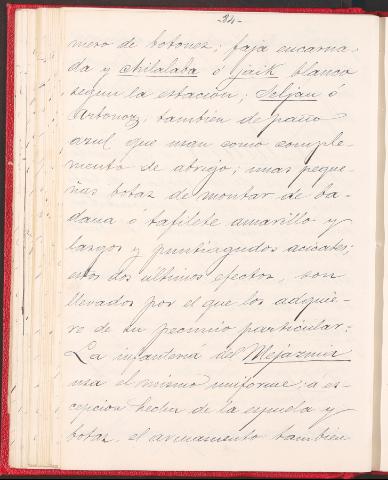 -34-
mero de botones; faja encarna-
da y chilalaba ó jaik blanco
segun la estación; Seljan ó
Artonoz, tambien de paño
azul que usan como comple-
mento de abrigo; unas peque-
ñas botas de montar de ba-
dana ó tafilete amarillo y
largos y puntiagudos acicates;
estos dos últimos efectos, son
llevados por el que los adquie-
re de su peculio particular.-
La infantería del Mejaznia
usa el mismo uniforme á es-
cepcion hecha de la espuela y
botas, el armamento tambien